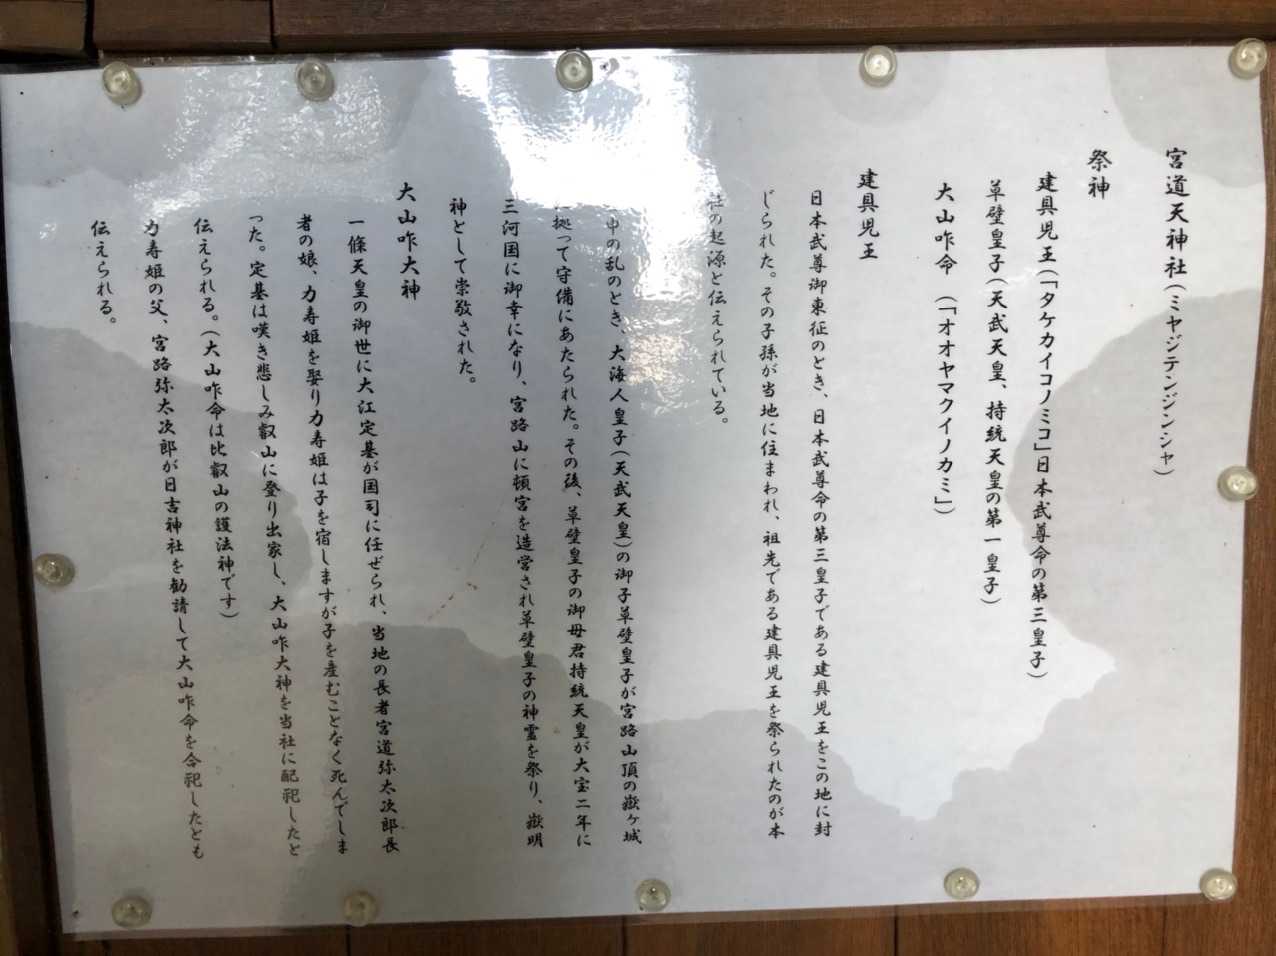 宮道天神社(ミヤジテンジンシャ)
祭神
建具児王(「タケカイコノミコ」日本武尊命の第三皇子)
草壁皇子(天武天皇、持統天皇の第一皇子)
大山咋命(「オオヤマクイノカミ」)
建具児王
日本武尊御東征のとき、日本武尊命の第三皇子である建具児王をこの地に封
じられた。その子孫が当地に住まわれ、祖先である建具児王を祭られたのが本
の起源と伝えられている。
申の乱のとき、大海人皇子(天武天皇)の御子草壁皇子が宮路山頂の嶽ヶ城
拠って守備にあたられた。その後、草壁皇子の御母君持統天皇が大宝二年に
三河国に御幸になり、宮路山に頓宮を造営され草壁皇子の神霊を祭り、嶽明
神として崇敬された。
大山咋大神
一條天皇の御世に大江定基が国司に任ぜられ、当地の長者宮道弥太次郎長
者の娘、力寿姫を娶り力寿姫は子を宿しますが子を産むことなく死んでしま
った。定基は嘆き悲しみ叡山に登り出家し、大山咋大神を当社に配祀したと
伝えられる。(大山咋命は比叡山の護法神です)
力寿姫の父、宮路弥太次郎が日吉神社を勧請して大山咋命を合祀したとも
伝えられる。